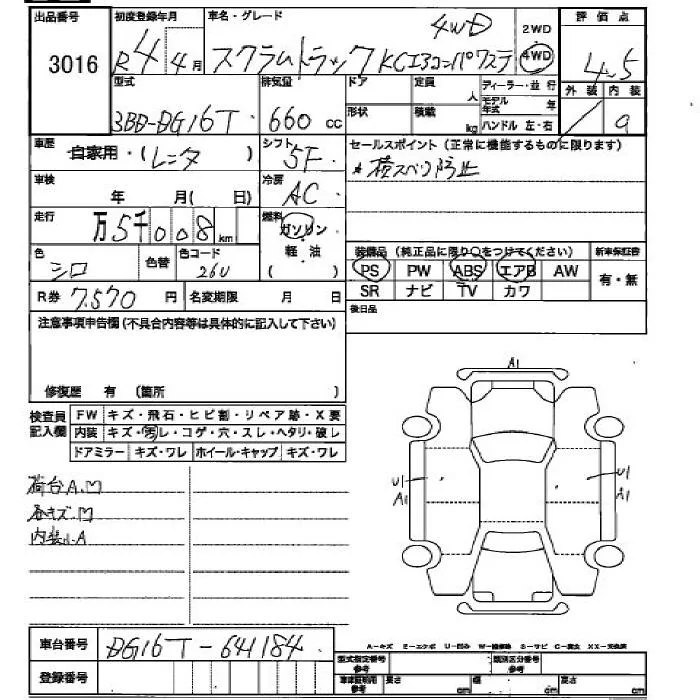 出品番号 初度登録年月 車名・グレード 4WD 2WD 評価点
3016 R4 4月 スクラムトラック KCエアコンパワステ 4WD 4.5
型式 排気量 ドア 定員 人 ディーラー・並行 外装 内装
3BD-DG16T 660 cc 形状 積載 kg モデル年式 年 ハンドル 左・右 a
車歴 自家用・(レンタ) シフト 5F セールスポイント (正常に機能するものに限ります)
車検 年 月( 日) 冷房 AC 横スベリ防止
走行 万5千008km 燃料 ガソリン 軽油 ( )
色 シロ 色替 色コード 26U 装備品 (純正品に限り○をつけてください) 新車保証書
PS PW ABS エアB AW 有・無
R券 7,570 円 名変期限 月 日 SR ナビ TV カワ
注意事項申告欄 (不具合内容等は具体的に記入して下さい) 後日品
修復歴 有 (箇所 )
A1
検査員記入欄 FW キズ・飛石・ヒビ割・リペア跡・X要
内装 キズ・汚レ・コゲ・穴・スレ・ヘタリ・破レ
ドアミラー キズ・ワレ ホイール・キャップ キズ・ワレ
U1 U1
A1 A1
荷台A.凹
各キズ.凹
内装小A
車台番号 DG16T-641184
A-キズ E-エクボ U-凹み W-補修跡 S-サビ C-腐食 XX-交換済
登録番号 型式指定番号参考 類別区分番号参考
車体証明用参考 長さ cm 幅 cm 高さ cm